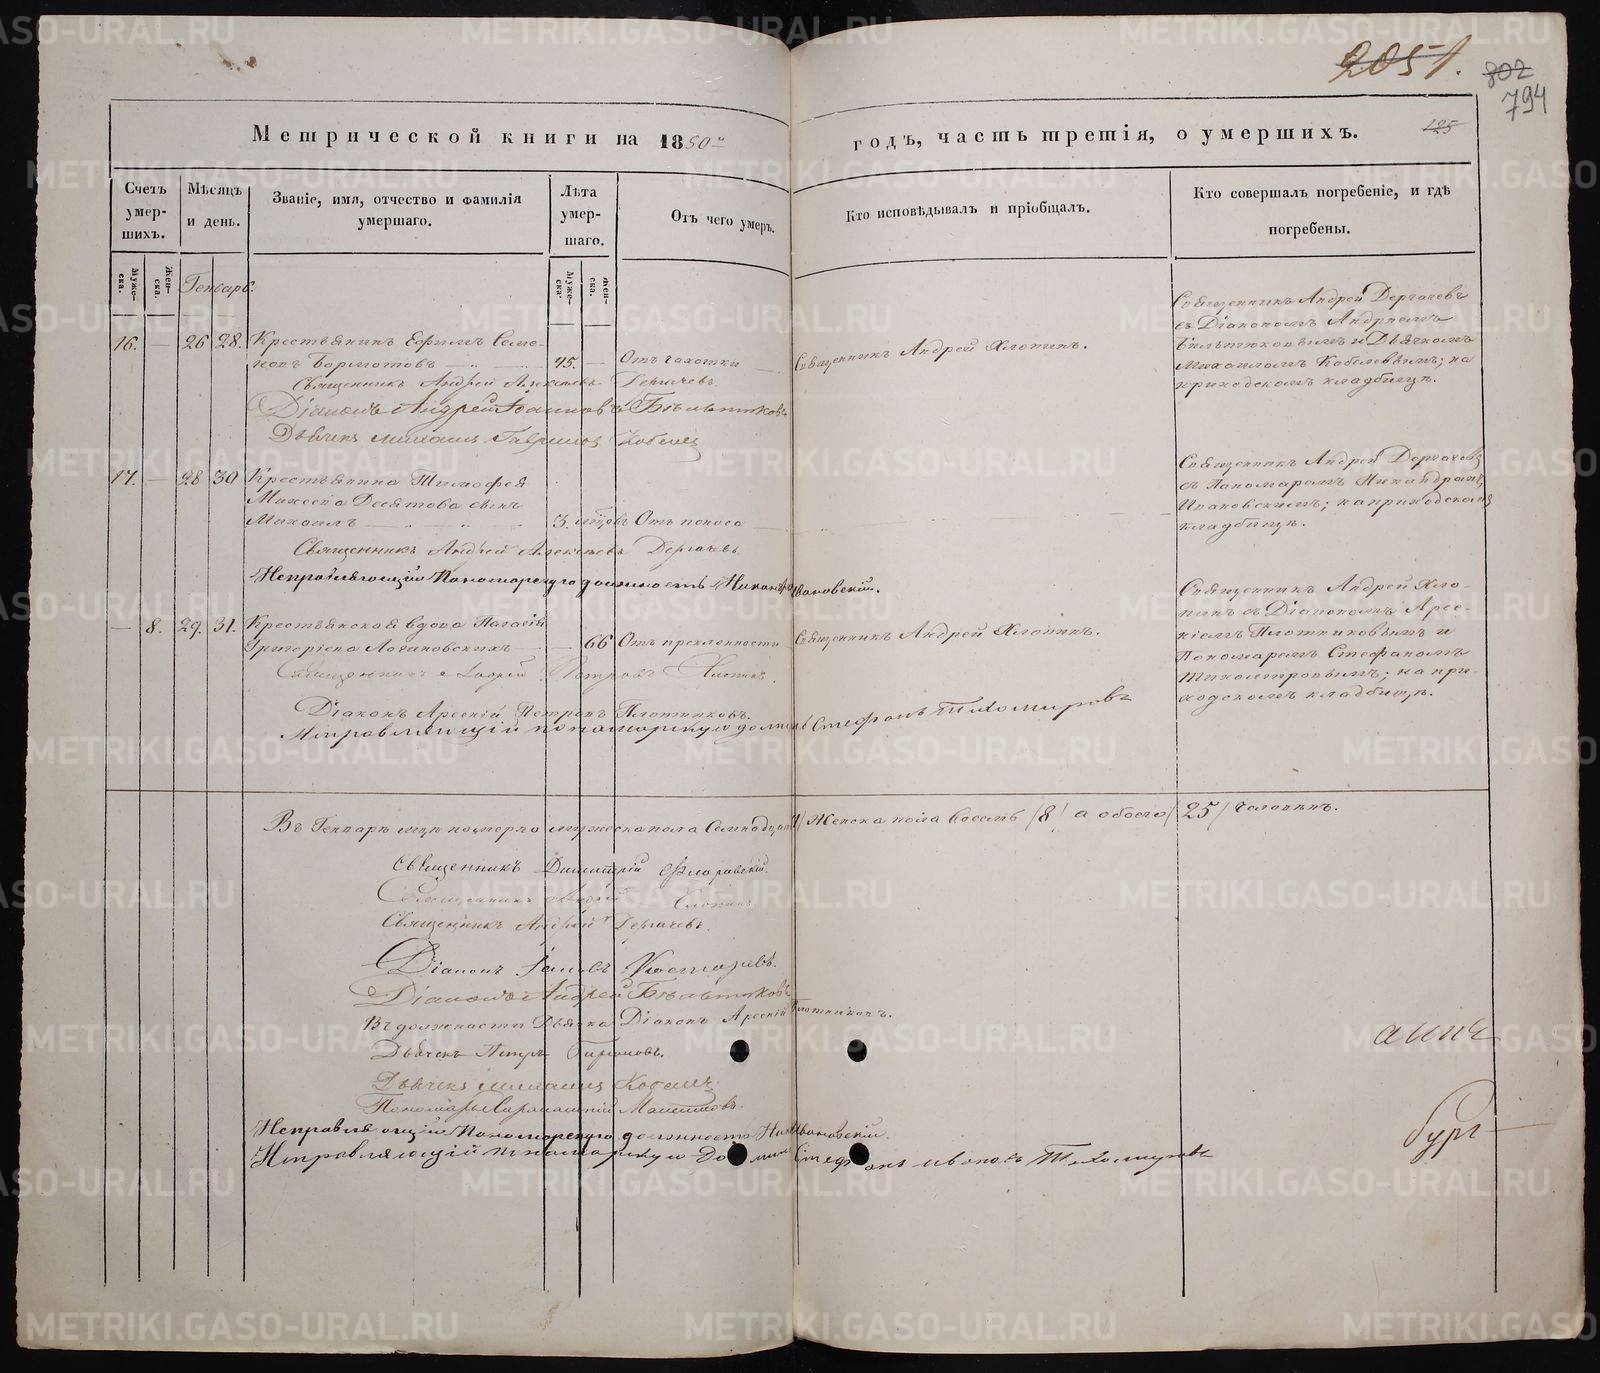 2051.
802
794
125
Метрической книги на 1850й годъ, часть третія, о умершихъ.
Счетъ умер-шихъ.
Мѣсяцъ и день.
Званіе, имя, отчество и фамилія умершаго.
Лѣта умер-шаго.
Отъ чего умеръ.
Кто исповѣдывалъ и пріобщалъ.
Кто совершалъ погребеніе, и гдѣ погребены.
Муже-ска.
Жен-ска.
Муже-ска.
Жен-ска.
Генварь.
16. — 26 28. Крестьянинъ Ефимъ Семе-
новъ Бормотовъ 45. — Отъ чахотки
Священникъ Андрей Хлопинъ.
Священникъ Андрей Дергачевъ
съ Діакономъ Андреемъ
Бѣльтюковымъ и Дьячкомъ
Михаиломъ Кобелевымъ; на
приходскомъ кладбищѣ.
Священникъ Андрей Алексѣевъ Дергачевъ
Діаконъ Андрей Іоанновъ Бѣльтюковъ
Дьячекъ Михаилъ Гавриловъ
17. — 28 30 Крестьянина Тимофея
Десятова сынъ
Михаилъ 3. мѣсяцъ Отъ поноса
Священникъ Андрей Дергачевъ
съ Пономаремъ Никандромъ
Ивановскимъ; на приходскомъ
кладбищѣ.
Священникъ Андрей Алексѣевъ Дергачевъ
Исправляющій Пономарскую должность Никандръ Ивановскій.
— 8. 29. 31. Крестьянская вдова
Григоріева 66 Отъ преклонности
Священникъ Андрей Хлопинъ.
Священникъ Андрей Хло-
пинъ съ Діакономъ Арсе-
ніемъ Плотниковымъ и
Пономаремъ Стефаномъ
Тихомировымъ; на при-
ходскомъ кладбищѣ.
Священникъ Андрей Петровъ Хлопинъ.
Діаконъ Арсеній Петровъ Плотниковъ.
Исправляющій пономарскую должность Стефанъ Тихомировъ
Въ Генварѣ мцѣ померло мужеска пола Семнадцать / Женска пола восемь /8/ а обоего /25/ Человѣкъ.
Священникъ Димитрій Флоровскій.
Священникъ Андрей Хлопинъ
Священникъ Андрей Дергачевъ.
Діаконъ Іаковъ
Діаконъ Андрей Бѣльтюковъ
Въ должности Дьячка Діаконъ Арсеній Плотниковъ.
Дьячекъ Петръ
Дьячекъ Михаилъ Кобелевъ
Пономарь
Исправляющій Пономарскую должность Никандръ Ивановскій.
Исправляющій пономарскую должность Стефанъ Ивановъ Тихомировъ
METRIKI.GASO-URAL.RU